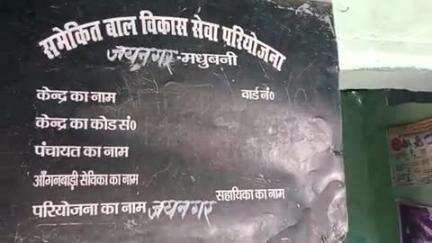 समेकित बाल विकास सेवा परियोजना
जयनगर-मधुबनी
केन्द्र का नाम वार्ड नं०
केन्द्र का कोड सं०
पंचायत का नाम
आँगनबाड़ी सेविका का नाम
सहायिका का नाम
परियोजना का नाम जयनगर